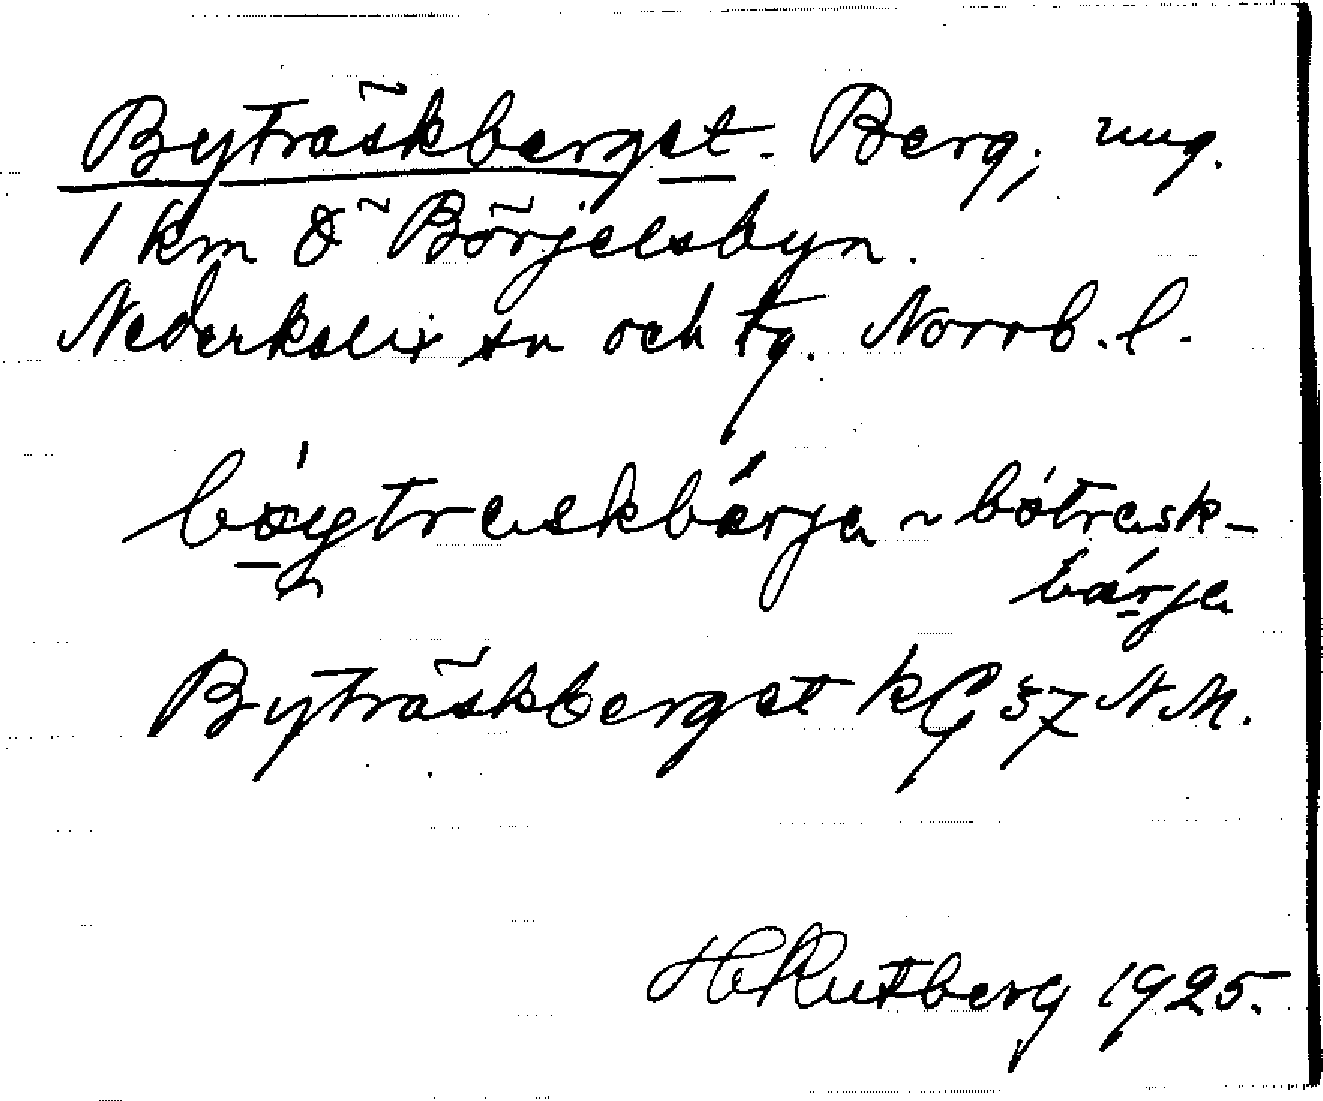 Byträskberget. Berg, ung.
1 km Ö Börjelsbyn.
Nederkalix sn och tg. Norrb. l.
bǿytræskbǽrja ~ bótræsk-
bǽrja
Byträskberget kG 57 N.M.
H Rutberg 1925.